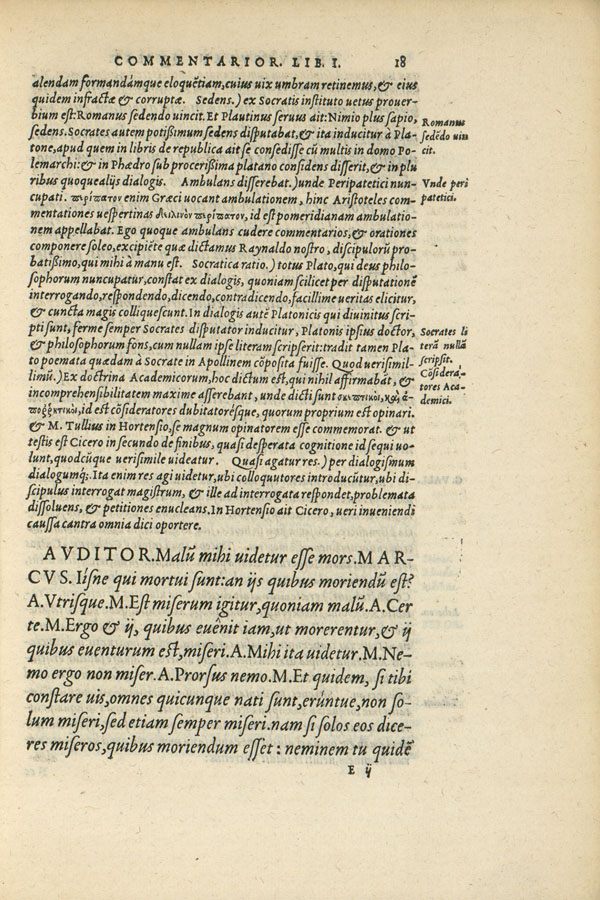 COMMENTARIOR. LIB. I. 18
alendam formandámque eloquẽtiam,cuius uix umbram retinemus,& eius
quidem infractæ & corruptæ. Sedens.) ex Socratis instituto uetus prouer-
bium est:Romanus sedendo uincit. Et Plautinus seruus ait:Nimio plus sapio,
sedens.Socrates autem potißimum sedens disputabat,& ita inducitur à Pla-
tone,apud quem in libris de republica ait se consedisse cũ multis in domo Po-
lemarchi:& in Phædro sub procerißima platano considens disserit,& in plu
ribus quoque alijs dialogis. Ambulans disserebat.)unde Peripatetici nun-
cupati. περίπατον enim Græci uocant ambulationem, hinc Aristoteles com-
mentationes uespertinas δειλινὸν περίπατον, id est pomeridianam ambulatio-
nem appellabat. Ego quoque ambulans cudere commentarios,& orationes
componere soleo,excipiẽte quæ dictamus Raynaldo nostro, discipulorũ pro-
batißimo,qui mihi à manu est. Socratica ratio.) totus Plato,qui deus philo-
sophorum nuncupatur,constat ex dialogis, quoniam scilicet per disputationẽ
interrogando,respondendo,dicendo,contradicendo,facillime ueritas elicitur,
& cuncta magis colliquescunt.In dialogis autẽ Platonicis qui diuinitus scri-
pti sunt, ferme semper Socrates disputator inducitur, Platonis ipsius doctor,
& philosophorum fons,cum nullam ipse literam scripserit:tradit tamen Pla-
to poemata quædam à Socrate in Apollinem cõposita fuisse. Quod uerisimil-
limũ.)Ex doctrina Academicorum,hoc dictum est,qui nihil affirmabāt, &
incomprehensibilitatem maxime asserebant, unde dicti sunt σκεπτικοὶ, καὶ ἀ-
πορρητικοὶ,id est cõsideratores dubitatorésque, quorum proprium est opinari.
& M. Tullius in Hortensio,se magnum opinatorem esse commemorat. & ut
testis est Cicero in secundo de finibus, quasi desperata cognitione id sequi uo-
lunt,quodcũque uerisimile uideatur. Quasi agatur res.) per dialogismum
dialogumq́;.Ita enim res agi uidetur,ubi colloquutores introducũtur,ubi di-
scipulus interrogat magistrum, & ille ad interrogata respondet,problemata
dissoluens, & petitiones enucleans.In Hortensio ait Cicero, ueri inueniendi
caussa cantra omnia dici oportere.
Romanus
sedẽdo uin
cit.
Vnde peri
patetici.
Socrates li
terā nullā
scripsit.
Cõsidera-
tores Aca-
demici.
AVDITOR.Malũ mihi uidetur esse mors.MAR-
CVS. Iísne qui mortui sunt:an ijs quibus moriendũ est?
A.Vtrisque.M.Est miserum igitur,quoniam malũ.A.Cer
te.M.Ergo & ij, quibus euênit iam,ut morerentur,& ij
quibus euenturum est,miseri.A.Mihi ita uidetur.M.Ne-
mo ergo non miser.A.Prorsus nemo.M.Et quidem, si tibi
constare uis,omnes quicunque nati sunt,erúntue,non so-
lum miseri,sed etiam semper miseri.nam si solos eos dice-
res miseros,quibus moriendum esset : neminem tu quidẽ
E ij